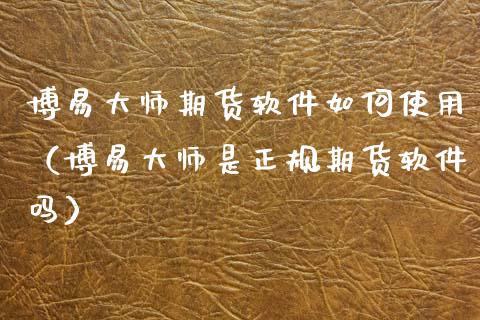 博易大师期货软件如何使用
（博易大师是正规期货软件
吗）